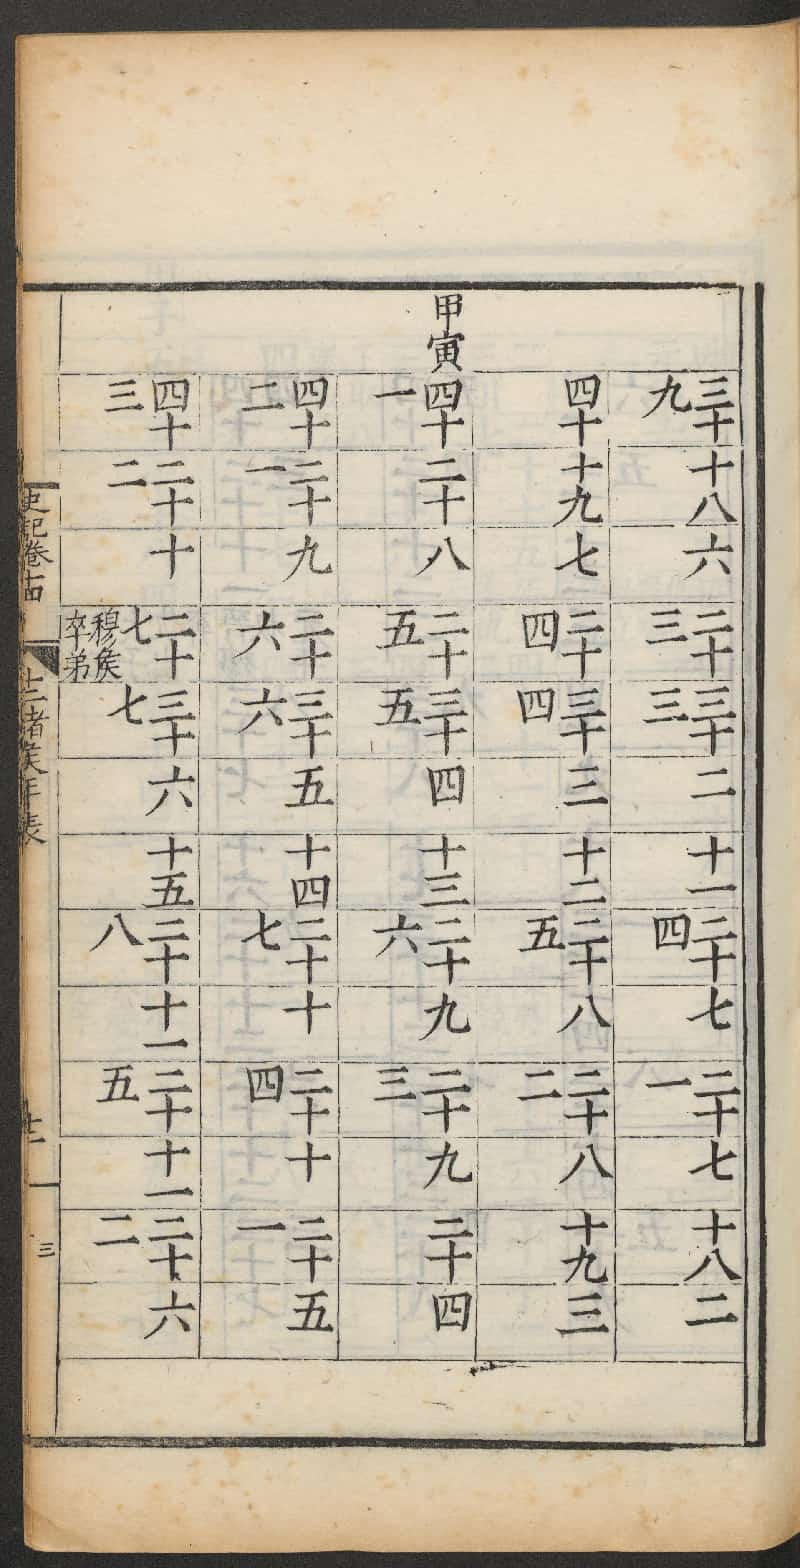 三十九 十八 六 二十三 三十三 二 十一 二十四 七 二十一 七 十八 二
四十 十九 七 二十四 三十四 三 十二 二十五 八 二十二 八 十九 三
甲寅 四十一 二十 八 二十五 三十五 四 十三 二十六 九 二十三 九 二十 四
四十二 二十一 九 二十六 三十六 五 十四 二十七 十 二十四 十 二十一 五
四十三 二十二 十 二十七 穆侯卒弟 三十七 六 十五 二十八 十一 二十五 十一 二十二 六
史記卷十四 十二諸侯年表 三